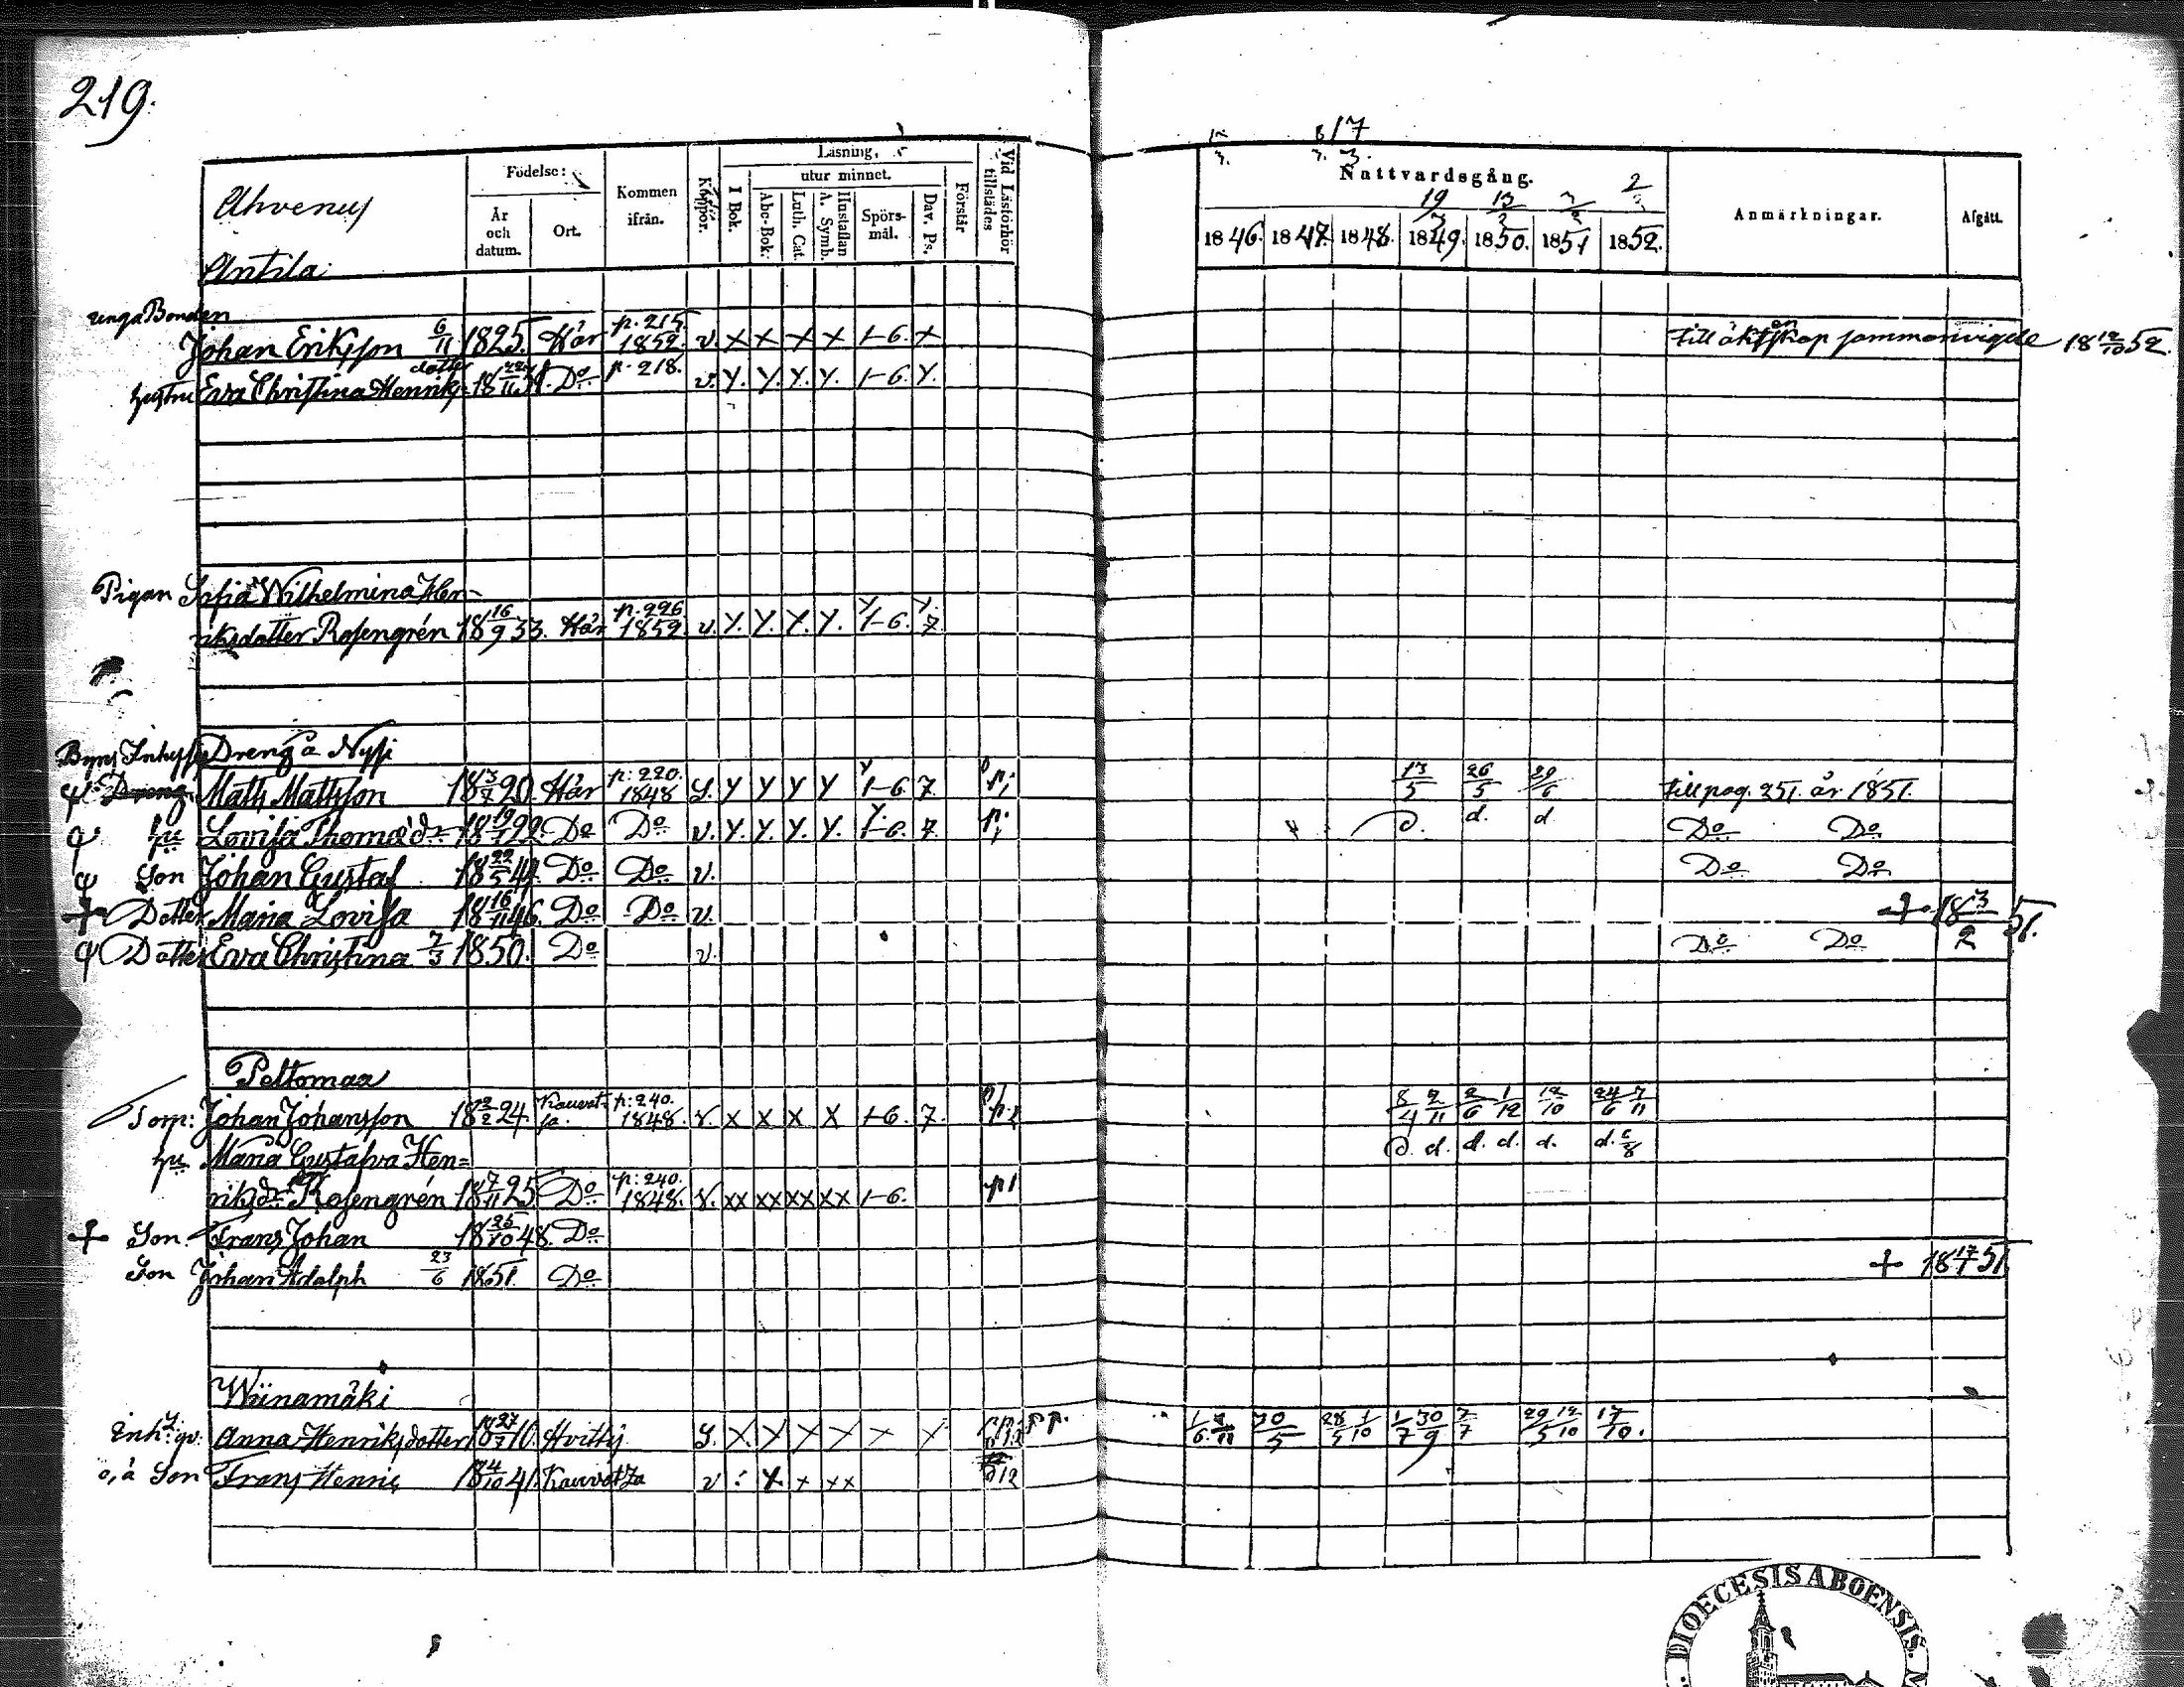 219.
Ahvenus
Antila
Födelse:
År och datum.
Ort.
Kommen ifrån.
Läsning,
utur minnet.
I Bok.
Abc-Bok.
Luth. Cat.
Hustaflan A. Symb.
Spörsmål.
Dav. Ps.
Förstår
Vid Läsförhör tillstädes
8/7
Nattvardsgång.
1846. 1847. 1848. 1849. 1850. 1851 1852.
Anmärkningar.
Afgått.
unga Bonden
Johan Eriksson 6/11 1825. Här p. 215. 1852. v. x x x x 1-6. x
till äktenskap sammanvigde 18 12/10 52.
hustru Eva Christina Henriks= dotter Do p. 218. v. Y. Y. Y. Y. 1-6. Y.
Pigan Sofia Wilhelmina Hen-
riksdotter Rosengrén 18 16/9 33. Här p. 226 1852. v. Y. Y. Y. Y. 1-6. 7.
Dreng å Nysi
Dreng Matts Mattsson 18 3/7 20. Här p: 220. 1848 Y Y Y Y 1-6. 7. 13/5 26/5 29/6 till pag. 251. år 1851.
hu Lovisa Thomasdr 18 19/1 22. Do Do v. Y. Y. Y. Y. 1-6. 7. d. d. d Do Do
Son Johan Gustaf 18 22/5 44. Do Do v. Do Do
+ Dotter Maria Lovisa 18 16/11 46. Do Do v. + 18 3/2 51.
Dotter Eva Christina 7/3 1850. Do v. Do Do
Peltomaa
Torp: Johan Johansson 18 2/2 24. Kauvatsa. p: 240. 1848. v. x x x x 1-6. 7. 8/4 2/11 2/6 1/12 12/10 24/6 7/11
hu Maria Gustafva Hen= d. d. d. d. d. d.
riksdr Rosengrén 18 7/11 25 Do p: 240. 1848. v. xx xx xx xx 1-6. p1
+ Son Frans Johan 18 25/10 48. Do
Son Johan Adolph 23/6 1851. Do + 18 17/7 51
Wiinamäki
Enh. qv: Anna Henriksdotter 18 27/7 10. Hvittis 30/5 28/5 1/10 1/7 30/9 7/7 29/5 12/10 17/10.
o, ä Son Frans Henric 18 4/10 41. Kauvatsa v
DIOECESIS ABOENSIS.